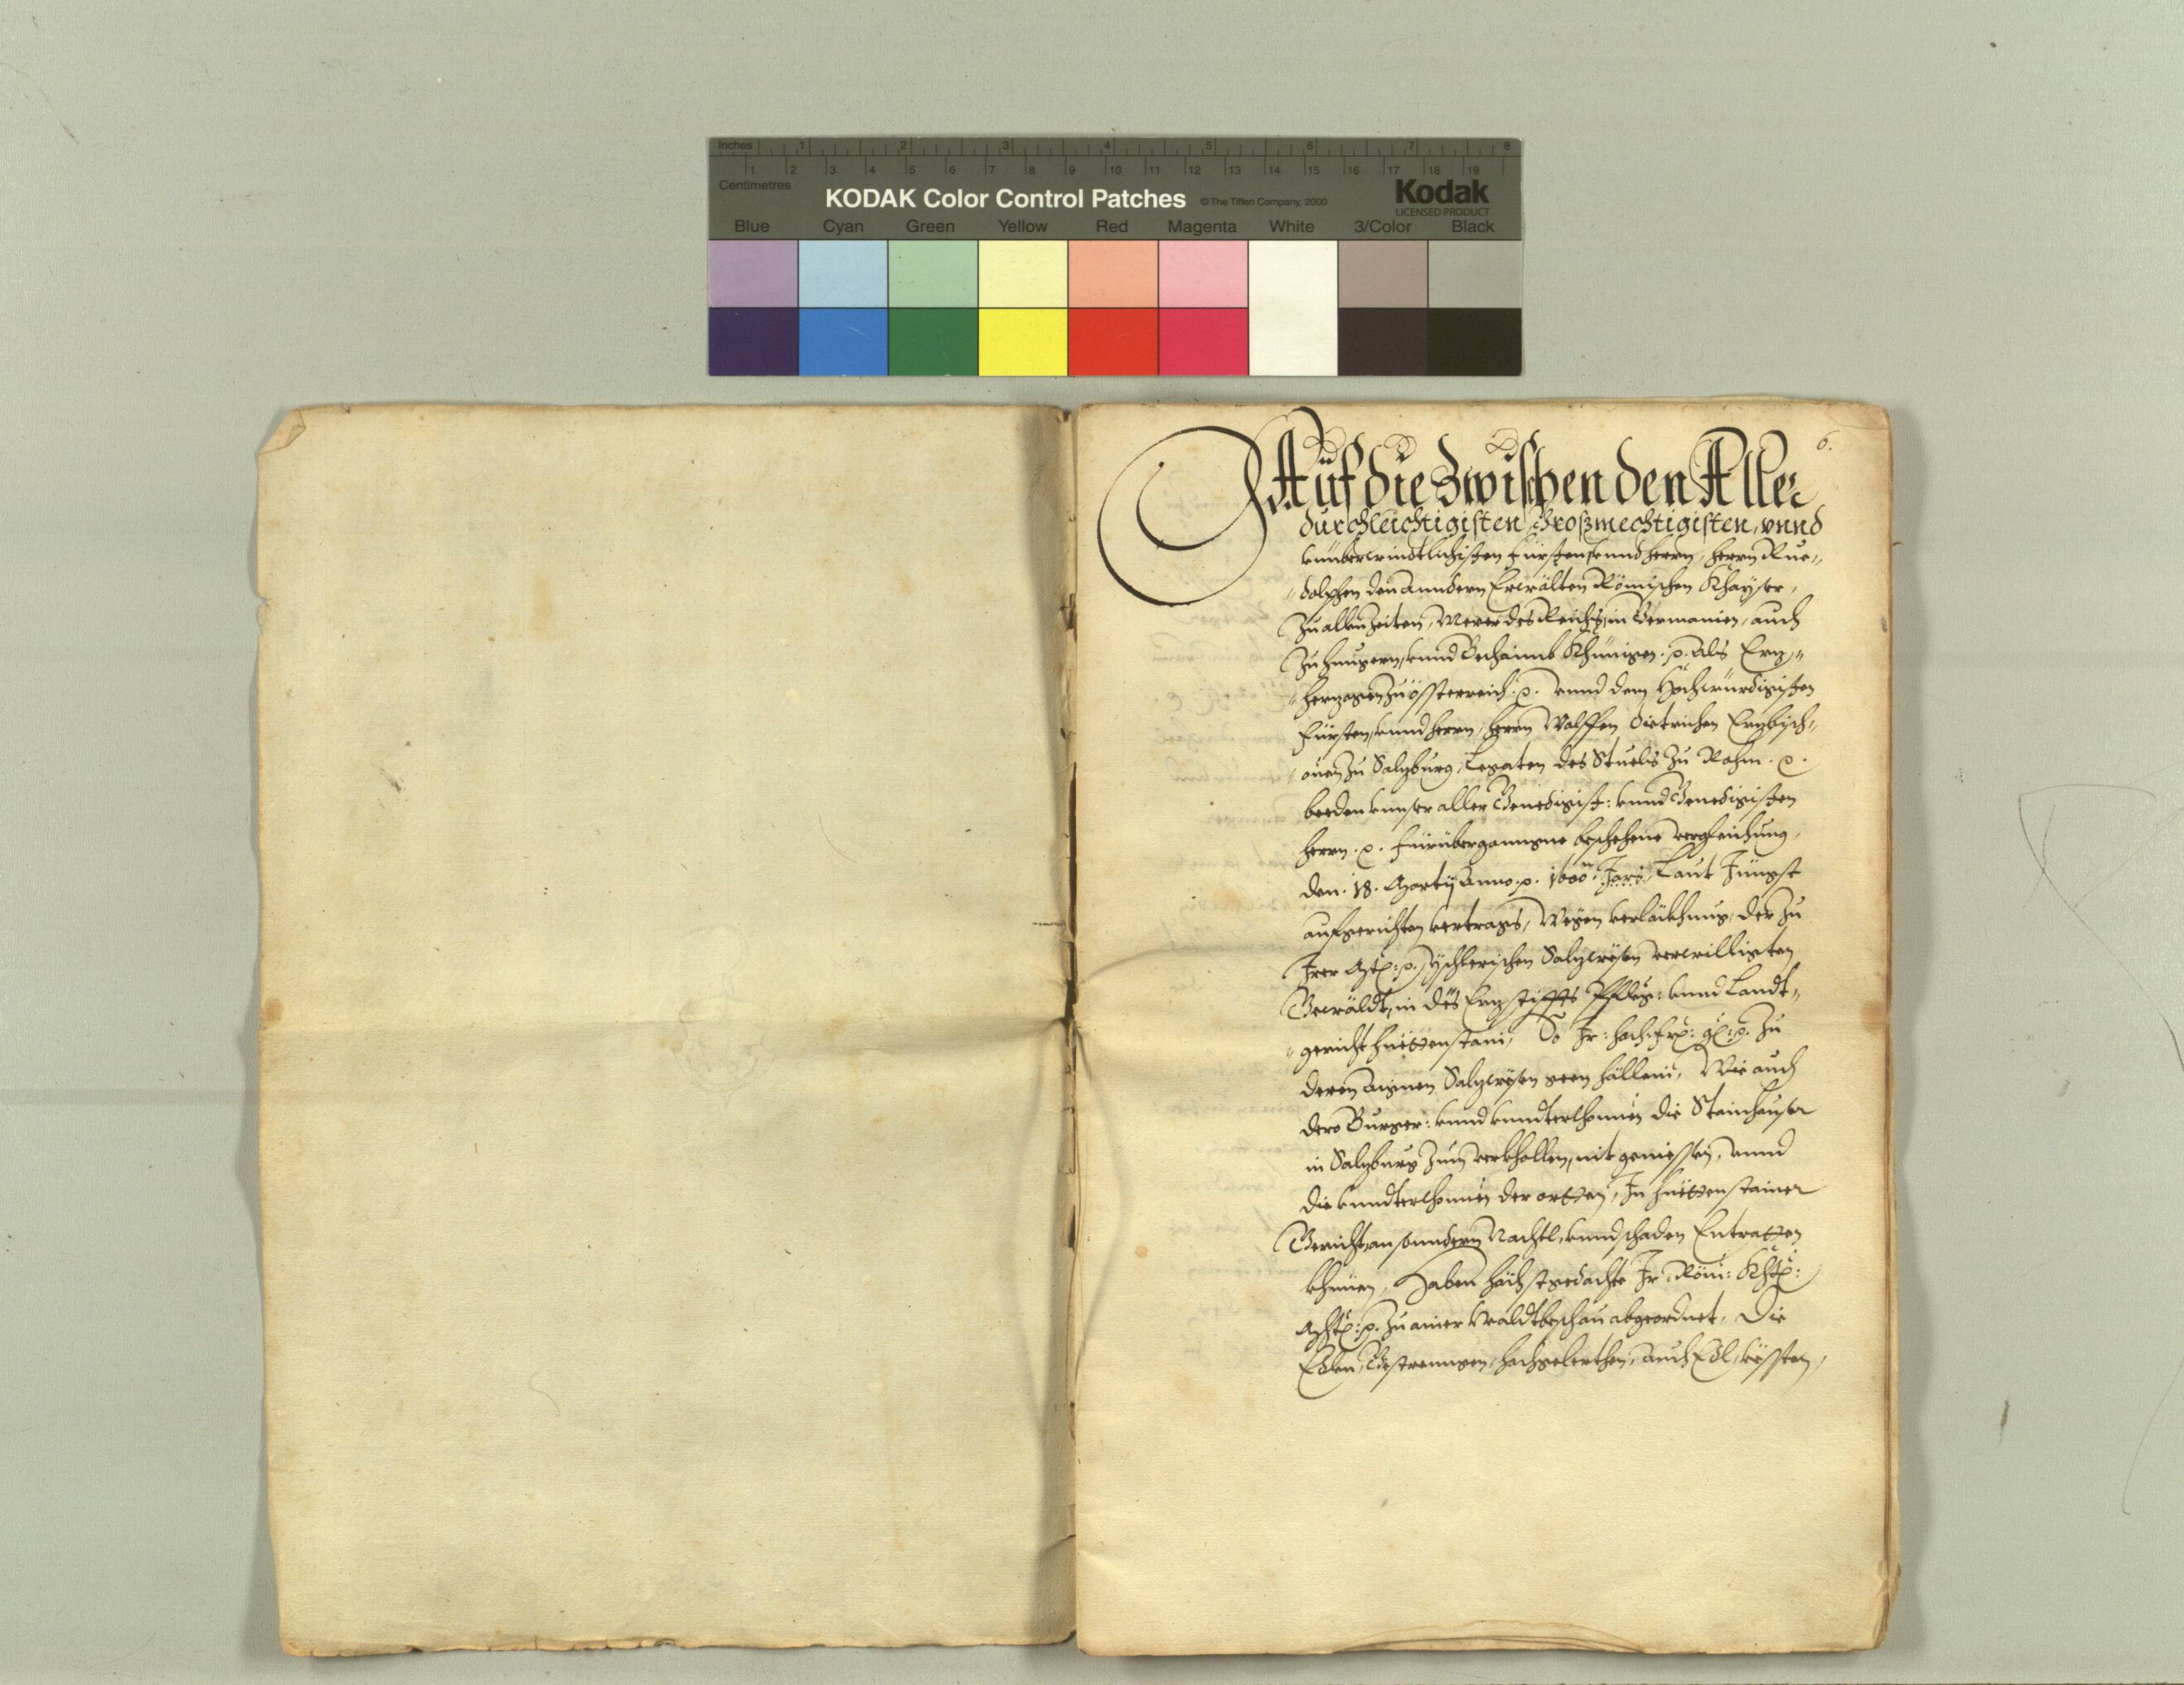 Inches 1 2 3 4 5 6 7 8
1 2 3 4 5 6 7 8 9 10 11 12 13 14 15 16 17 18 19
Centimetres
KODAK Color Control Patches © The Tiffen Company, 2000 Kodak
LICENSED PRODUCT
Blue Cyan Green Yellow Red Magenta White 3/Color Black
6.
Auf die Zwischen den Aller
durchleichtigisten, Grosmechtigisten, vnnd
vnüberwindtlichisten Fürsten vnnd herrn, herrn Rue„
„dolphen den Anndern Erwölten Römischen Khayser,
Zu allen Zeiten, Merer des Reichs, in Germanien, auch
Zu Hungern, vnnd Behaimb Khünigen. p. als Erz„
„herzogen zu össterreich. p. vnnd dem Hochwürdigisten
Fürsten, vnnd herrn, herrn Wolffen Dietrichen Erzbisch„
„ouen zu Salzburg, Legaten des Stuels zu Rohm. p.
beeden vnnser aller Genedigist: vnnd Genedigisten
herrn. p. fürüberganngne beschehene vergleichung,
den. 18. Marty Anno. p. 1600n. Jars, Laut Jüngst
aufgerichten vertrags, Wegen verlackhung, der zu
Irer Mt: p. Yschlerischen Salzwesen verwilligten
Gewäldt, in des Erzstiffts Pfleg: vnnd Landt„
„gericht Hüttenstain, So Ir: hoch: frl: gl: p. zu
deren aignen Salzwesen geen Hällein, Wie auch
dero Burger: vnnd vnnderthonnen die Stainhauser
in Salzburg zum verkhollen, nit geniessen, vnnd
die vnnderthonnen der orten, In Hüttenstainer
Gericht, an sonndern Nachtl, vnnd schaden Entratten
khünen, Haben höchstgedachte Ir Röm: Kht:
Mt: p. zu ainer Waldtbeschau abgeordnet, Die
Edlen, Gestrenngen, hochgelerthen, auch Edl, vessten,